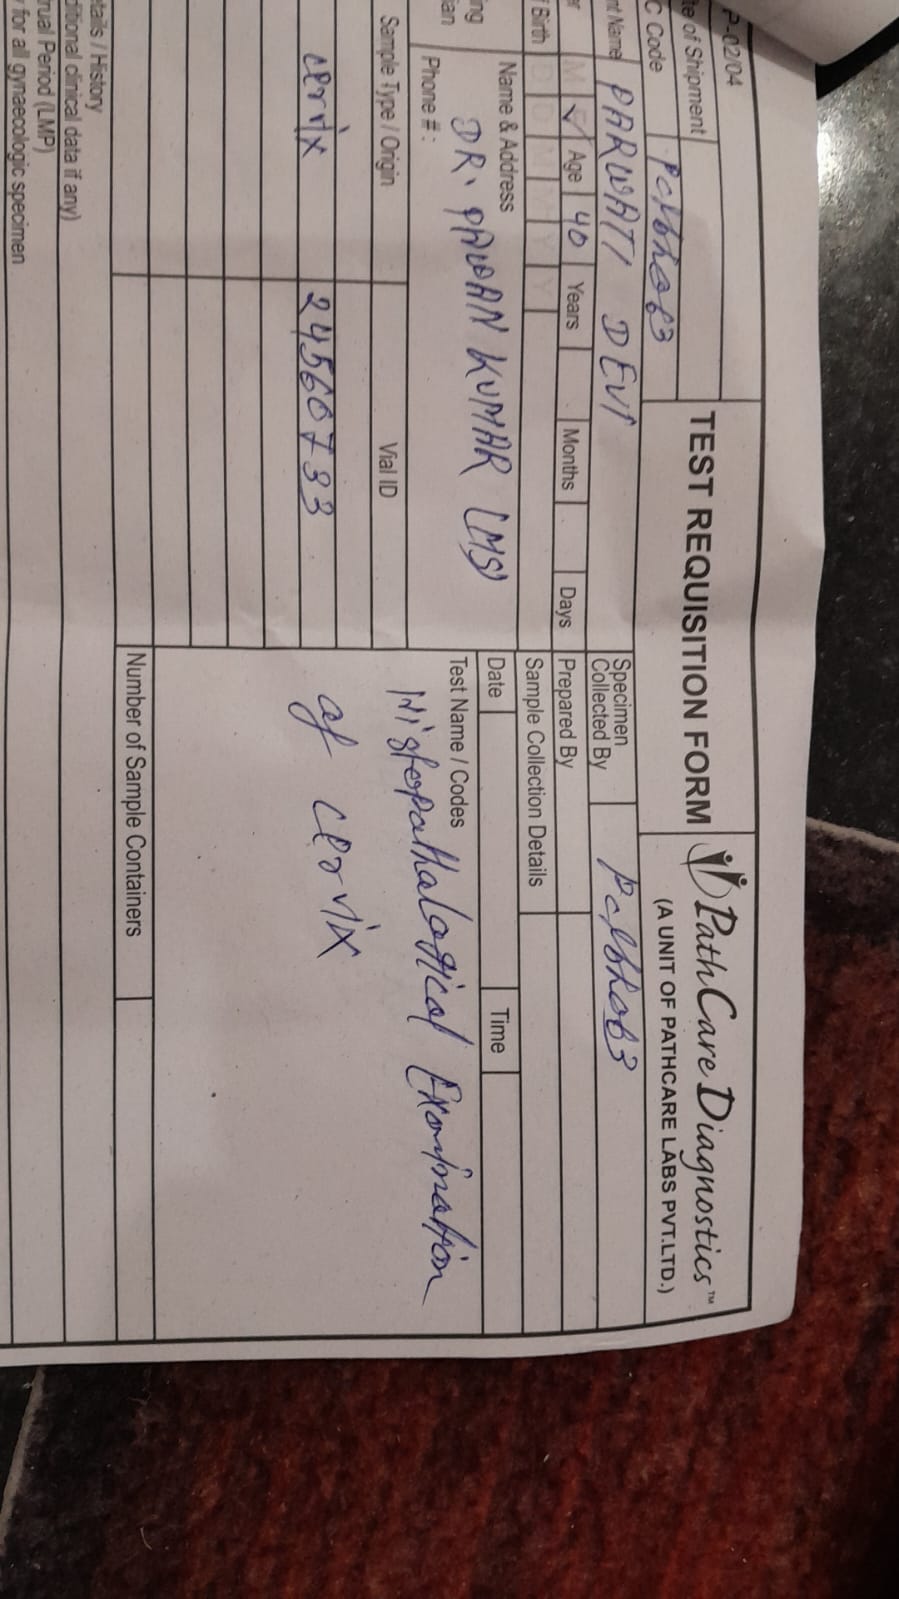 P-02/04
TEST REQUISITION FORM
PathCare Diagnostics™
(A UNIT OF PATHCARE LABS PVT.LTD.)
te of Shipment
C Code
nt Name PARWATI DEVI
Specimen
Collected By
er M F Age 40 Years Months Days
Prepared By
f Birth D D M M Y Y
Sample Collection Details
Date Time
ing
ian
Name & Address
DR. PAWAN KUMAR (MS)
Phone # :
Test Name / Codes
Histopathalogical Examination
of cervix
Sample Type / Origin Vial ID
cervix 24560733
Number of Sample Containers
etails / History
ditional clinical data if any)
rual Period (LMP)
y for all gynaecologic specimen